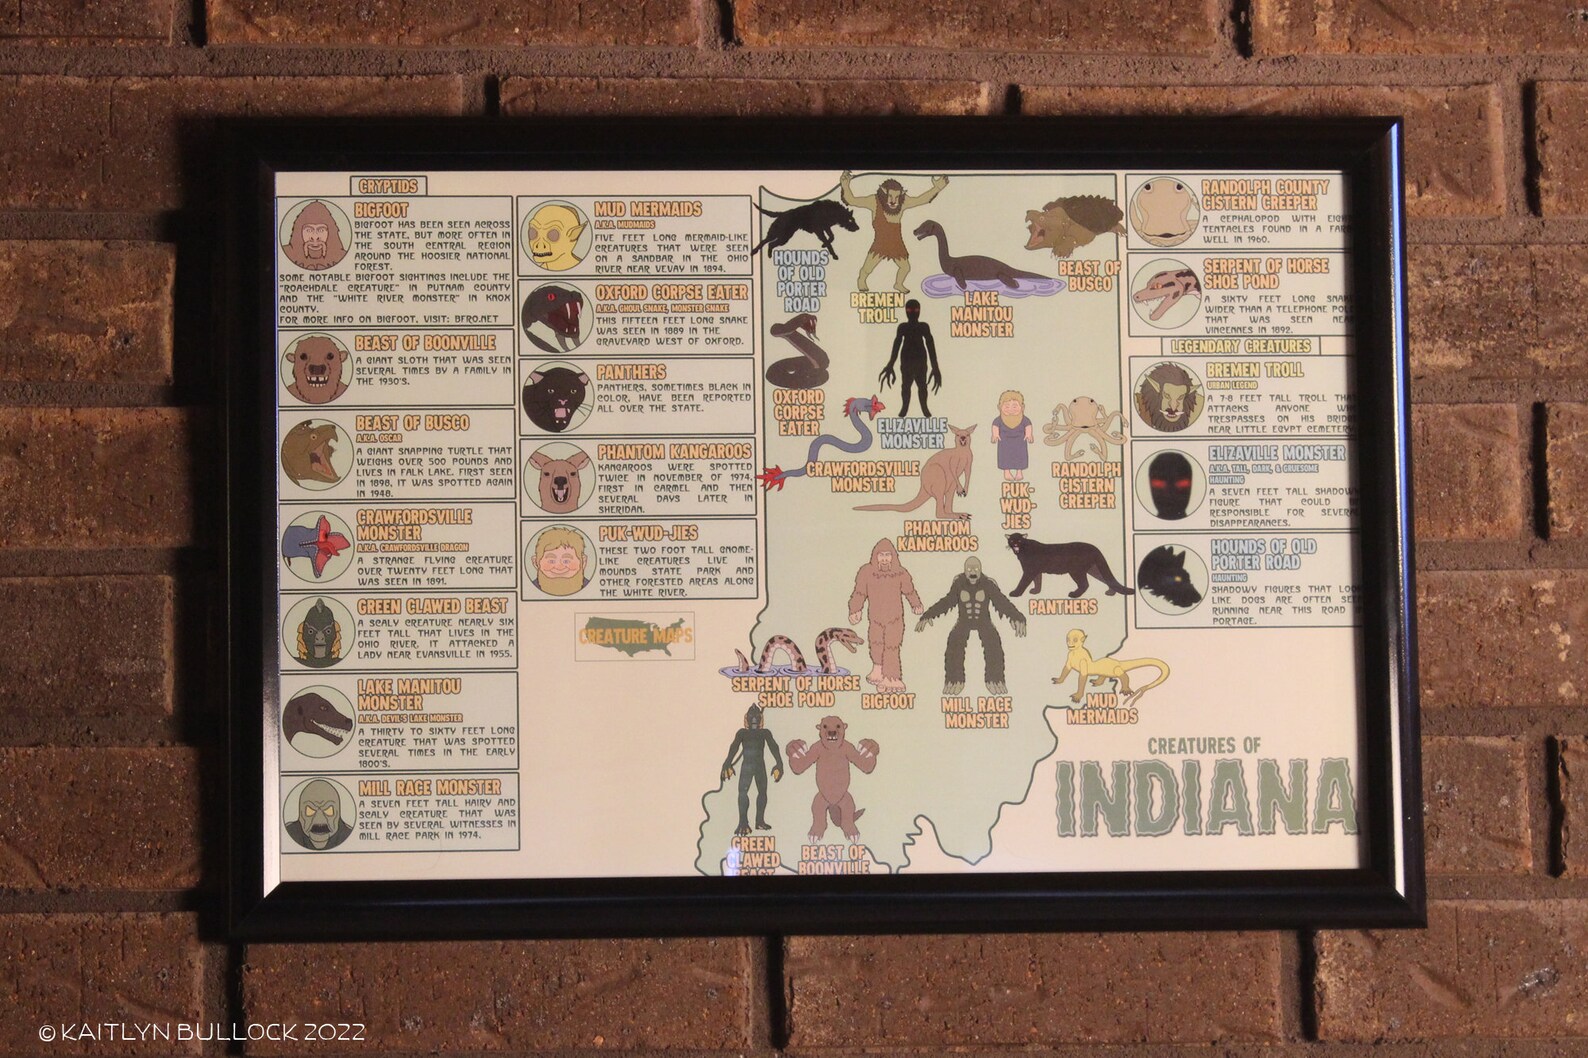 CRYPTIDS
BIGFOOT
BIGFOOT HAS BEEN SEEN ACROSS
THE STATE, BUT MORE OFTEN IN
THE SOUTH CENTRAL REGION
AROUND THE HOOSIER NATIONAL
FOREST.
SOME NOTABLE BIGFOOT SIGHTINGS INCLUDE THE
"ROACHDALE CREATURE" IN PUTNAM COUNTY
AND THE "WHITE RIVER MONSTER" IN KNOX
COUNTY.
FOR MORE INFO ON BIGFOOT, VISIT: BFRO.NET
BEAST OF BOONVILLE
A GIANT SLOTH THAT WAS SEEN
SEVERAL TIMES BY A FAMILY IN
THE 1930'S.
BEAST OF BUSCO
A.K.A. OSCAR
A GIANT SNAPPING TURTLE THAT
WEIGHS OVER 500 POUNDS AND
LIVES IN FALK LAKE. FIRST SEEN
IN 1898, IT WAS SPOTTED AGAIN
IN 1948.
CRAWFORDSVILLE
MONSTER
A.K.A. CRAWFORDSVILLE DRAGON
A STRANGE FLYING CREATURE
OVER TWENTY FEET LONG THAT
WAS SEEN IN 1891.
GREEN CLAWED BEAST
A SCALY CREATURE NEARLY SIX
FEET TALL THAT LIVES IN THE
OHIO RIVER, IT ATTACKED A
LADY NEAR EVANSVILLE IN 1955.
LAKE MANITOU
MONSTER
A.K.A. DEVIL'S LAKE MONSTER
A THIRTY TO SIXTY FEET LONG
CREATURE THAT WAS SPOTTED
SEVERAL TIMES IN THE EARLY
1800'S.
MILL RACE MONSTER
A SEVEN FEET TALL HAIRY AND
SCALY CREATURE THAT WAS
SEEN BY SEVERAL WITNESSES IN
MILL RACE PARK IN 1974.
MUD MERMAIDS
A.K.A. MUDMAIDS
FIVE FEET LONG MERMAID-LIKE
CREATURES THAT WERE SEEN
ON A SANDBAR IN THE OHIO
RIVER NEAR VEVAY IN 1894.
OXFORD CORPSE EATER
A.K.A. GHOUL SNAKE, MONSTER SNAKE
THIS FIFTEEN FEET LONG SNAKE
WAS SEEN IN 1889 IN THE
GRAVEYARD WEST OF OXFORD.
PANTHERS
PANTHERS, SOMETIMES BLACK IN
COLOR, HAVE BEEN REPORTED
ALL OVER THE STATE.
PHANTOM KANGAROOS
KANGAROOS WERE SPOTTED
TWICE IN NOVEMBER OF 1974,
FIRST IN CARMEL AND THEN
SEVERAL DAYS LATER IN
SHERIDAN.
PUK-WUD-JIES
THESE TWO FOOT TALL GNOME-
LIKE CREATURES LIVE IN
MOUNDS STATE PARK AND
OTHER FORESTED AREAS ALONG
THE WHITE RIVER.
CREATURE MAPS
HOUNDS
OF OLD
PORTER
ROAD
BREMEN
TROLL
LAKE
MANITOU
MONSTER
BEAST OF
BUSCO
OXFORD
CORPSE
EATER
ELIZAVILLE
MONSTER
CRAWFORDSVILLE
MONSTER
PUK-
WUD-
JIES
RANDOLPH
CISTERN
CREEPER
PHANTOM
KANGAROOS
PANTHERS
SERPENT OF HORSE
SHOE POND
BIGFOOT
MILL RACE
MONSTER
MUD
MERMAIDS
GREEN
CLAWED
BEAST
BEAST OF
BOONVILLE
RANDOLPH COUNTY
CISTERN CREEPER
A CEPHALOPOD WITH EIGH
TENTACLES FOUND IN A FAR
WELL IN 1960.
SERPENT OF HORSE
SHOE POND
A SIXTY FEET LONG SNAK
WIDER THAN A TELEPHONE POLE
THAT WAS SEEN NEA
VINCENNES IN 1892.
LEGENDARY CREATURES
BREMEN TROLL
URBAN LEGEND
A 7-8 FEET TALL TROLL THA
ATTACKS ANYONE WH
TRESPASSES ON HIS BRIDG
NEAR LITTLE EGYPT CEMETERY
ELIZAVILLE MONSTER
A.K.A. TALL, DARK, & GRUESOME
HAUNTING
A SEVEN FEET TALL SHADOW
FIGURE THAT COULD B
RESPONSIBLE FOR SEVERA
DISAPPEARANCES.
HOUNDS OF OLD
PORTER ROAD
HAUNTING
SHADOWY FIGURES THAT LOO
LIKE DOGS ARE OFTEN SEE
RUNNING NEAR THIS ROAD I
PORTAGE.
CREATURES OF
INDIANA
© KAITLYN BULLOCK 2022